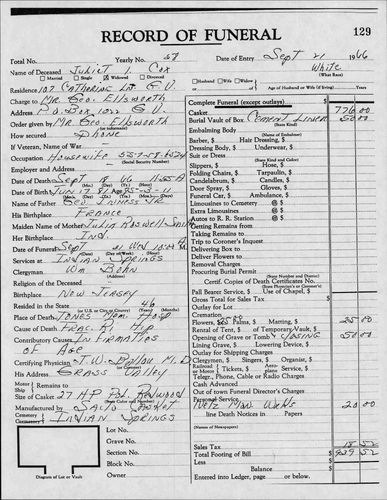 RECORD OF FUNERAL
129
Total No.
Yearly No. 57
Date of Entry Sept 21 1966
Name of Deceased Juliet I. Cox
White
(What Race)
Married Single Widowed Divorced
Residence 107 Catherine Ln G.V.
Husband Wife Widow of
Age of Husband or Wife (if living) Years
Charge to Mr. Geo. Ellsworth
Address P.O. Box 1022 G.V.
Order given by Mr. Geo. Ellsworth
How secured Phone
If Veteran, Name of War
Occupation Housewife
(Social Security Number)
Employer and Address
Date of Death Sept 18 66
Date of Birth June 17
Name of Father Geo.
His Birthplace France
Maiden Name of Mother Julia Roswell Smith
Her Birthplace Ind.
Date of Funeral Sept 21 Wed
Services at Indian Springs
Clergyman Wm Bohn
Religion of the Deceased
Birthplace New Jersey
Resided in the State 46
Place of Death Jones Mem. Hosp
Cause of Death Frac. R. Hip
Contributory Causes Infirmaties
of Age
Certifying Physician J.T.W. Ballou M.D.
His Address Grass Valley
Motor Ship
Remains to
Size of Casket Redwood
Manufactured by Sacto Casket
Cemetery Indian Springs
Lot No.
Grave No.
Section No.
Block No.
Owner
Diagram of Lot or Vault
Complete Funeral (except outlays) $
Casket 776 00
Burial Vault of Box Cement Liner 50 00
Embalming Body
(Name of Embalmer)
Barber, $ Hair Dressing, $
Dressing Body, $ Underwear, $
Suit or Dress
(State Kind and Color)
Slippers, $ Hose, $
Folding Chairs, $ Tarpaulin, $
Candelabrum, $ Candles, $
Door Spray, $ Gloves, $
Funeral Car, $ Ambulance, $
Limousines to Cemetery @ $
Extra Limousines @ $
Autos to R. R. Station @ $
Getting Remains from
Taking Remains to
Trip to Coroner's Inquest
Delivering Box to
Deliver Flowers to
Removal Charges
Procuring Burial Permit
Certif. Copies of Death Certificates No.
Pall Bearer Service, $ Use of Chapel, $
Gross Total for Sales Tax $
Outlay for Lot
Cremation
Flowers, $25 00 Palms, $ Matting, $ 25 00
Rental of Tent, $ of Temporary Vault, $
Opening of Grave or Tomb & Closing 50 00
Lining Grave, $ Lowering Device, $
Outlay for Shipping Charges
Clergymen, $ Singers, $ Organist, $
Railroad or Motor Tickets, $ Aeroplane Service, $
Telegr., Phone, Cable or Radio Charges
Cash Advanced
Out of town Funeral Director's Charges
Personal Service
20 00
line Death Notices in Papers
(Names of Newspapers)
Sales Tax 18 52
Total Footing of Bill $ 939 52
Less
Balance $
Entered into Ledger, page or below.